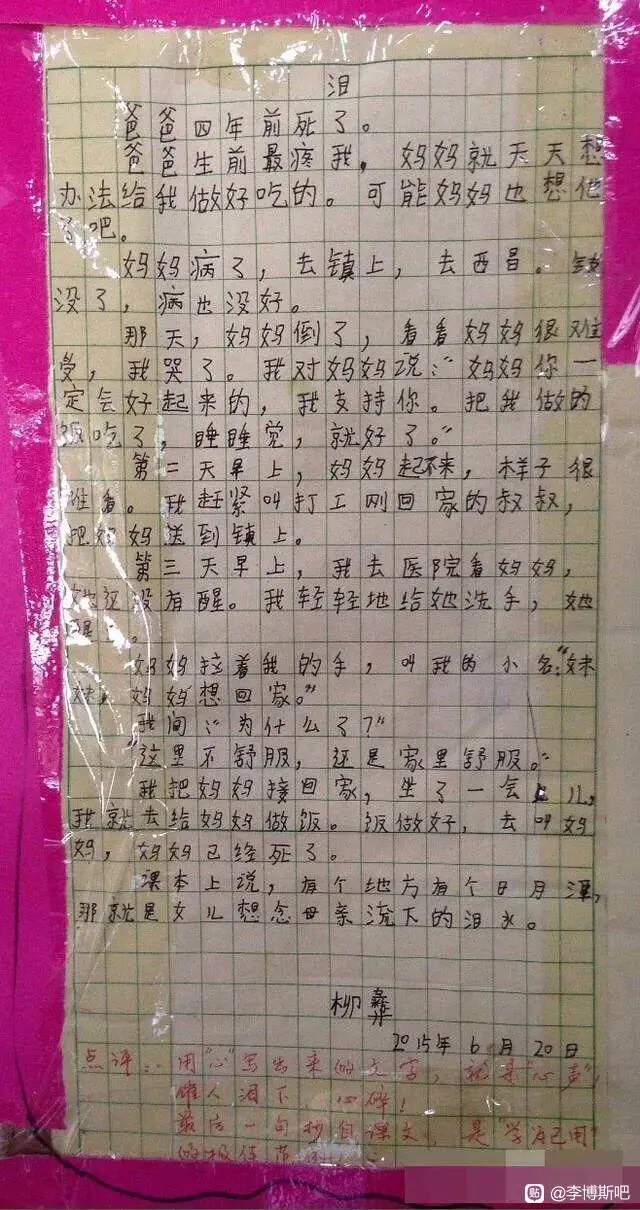 泪
爸爸四年前死了。
爸爸生前最疼我,妈妈就天天想
办法给我做好吃的。可能妈妈也想他
了吧。
妈妈病了,去镇上,去西昌。钱
没了,病也没好。
那天,妈妈倒了,看看妈妈很难
受,我哭了。我对妈妈说:“妈妈你一
定会好起来的,我支持你。把我做的
饭吃了,睡睡觉,就好了。”
第二天早上,妈妈起不来,样子很
难看。我赶紧叫打工刚回家的叔叔,
把妈妈送到镇上。
第三天早上,我去医院看妈妈,
她还没有醒。我轻轻地给她洗手,她
醒了。
妈妈拉着我的手,叫我的小名:“妹
妹,妈妈想回家。”
我问:“为什么了?”
“这里不舒服,还是家里舒服。”
我把妈妈接回家,坐了一会儿,
我就去给妈妈做饭。饭做好,去叫妈
妈,妈妈已经死了。
课本上说,有个地方有个日月潭,
那就是女儿想念母亲流下的泪水。
柳彝
2015年6月20日
点评:用“心”写出来的文字,就是“心声”,
催人泪下,心碎!
最后一句抄自课文,是“学为己用”
的极佳
贴 @李博斯吧